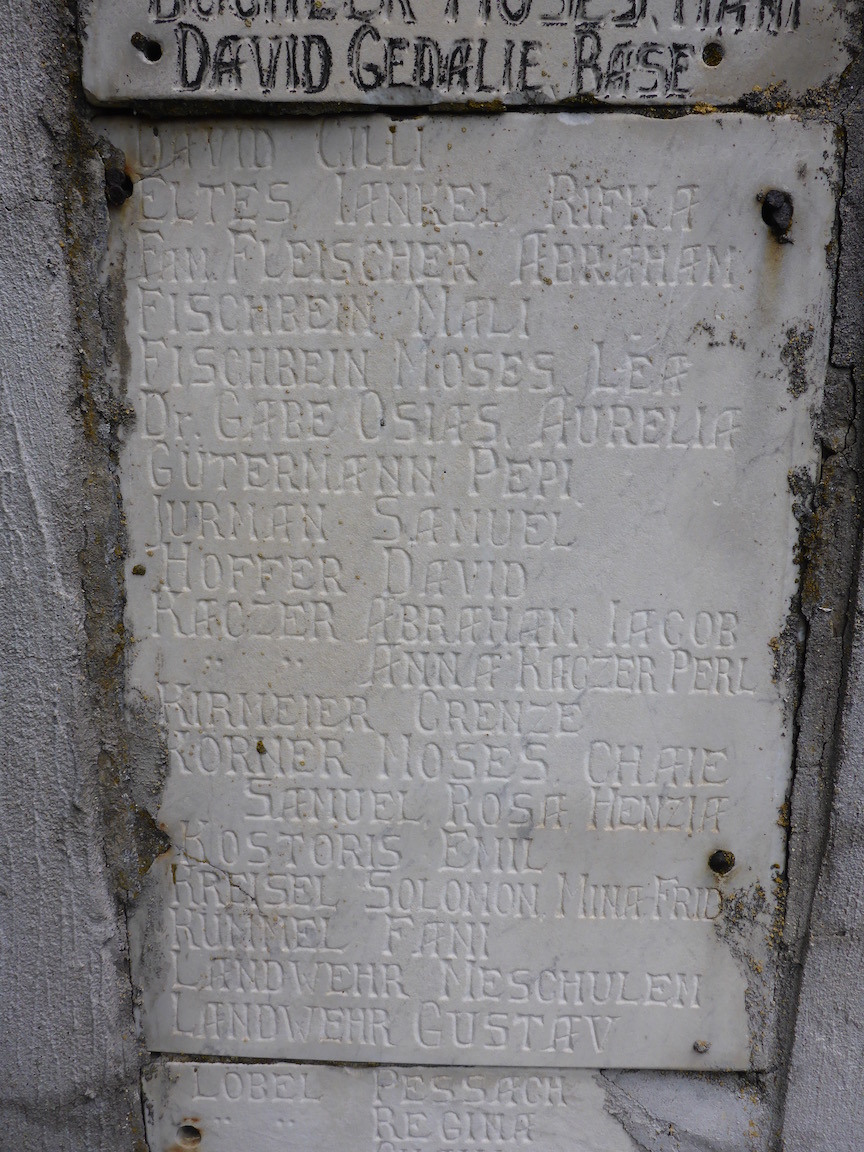 BUCHLER MOSES, HANI
DAVID GEDALIE, BASE
DAVID CILLI
ELTES IANKEL, RIFKA
FAM. FLEISCHER ABRAHAM
FISCHBEIN MALI
FISCHBEIN MOSES, LEA
Dr. GABE OSIAS, AURELIA
GÜTERMANN PEPI
JURMAN SAMUEL
HOFFER DAVID
KACZER ABRAHAM, IACOB
" " ANNA KACZER PERL
KIRMEIER CRENZE
KORNER MOSES, CHAIE
SAMUEL, ROSA, HENZIA
KOSTORIS EMIL
KREISEL SOLOMON, MINA, FRID
KÜMMEL FANI
LANDWEHR MESCHULEM
LANDWEHR GUSTAV
LÖBEL PESSACH
" " REGINA